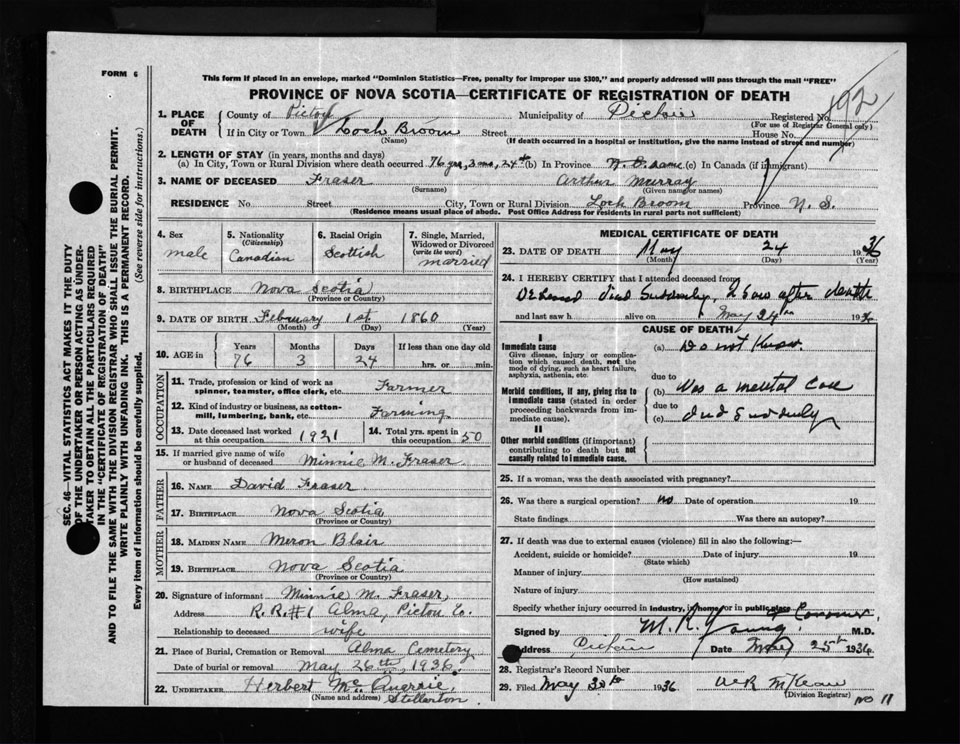 FORM 6
This form if placed in an envelope, marked "Dominion Statistics—Free, penalty for improper use $300," and properly addressed will pass through the mail "FREE"
PROVINCE OF NOVA SCOTIA—CERTIFICATE OF REGISTRATION OF DEATH
192
1. PLACE OF DEATH
County of Pictou Municipality of Pictou Registered No.
(For use of Registrar General only)
If in City or Town Loch Broom Street House No.
(Name) (If death occurred in a hospital or institution, give the name instead of street and number)
2. LENGTH OF STAY (in years, months and days)
(a) In City, Town or Rural Division where death occurred 76 yrs, 3 ms, 24 (b) In Province N.S. same (c) In Canada (if immigrant)
3. NAME OF DECEASED Fraser Arthur Murray
(Surname) (Given name or names)
RESIDENCE No Street City, Town or Rural Division Loch Broom Province N. S.
(Residence means usual place of abode. Post Office Address for residents in rural parts not sufficient)
4. Sex male
5. Nationality (Citizenship) Canadian
6. Racial Origin Scottish
7. Single, Married, Widowed or Divorced (write the word) married
8. BIRTHPLACE Nova Scotia
(Province or Country)
9. DATE OF BIRTH February 1st 1860
(Month) (Day) (Year)
10. AGE in Years Months Days If less than one day old
76 3 24 hrs. or min.
OCCUPATION
11. Trade, profession or kind of work as spinner, teamster, office clerk, etc. Farmer
12. Kind of industry or business, as cotton-mill, lumbering, bank, etc. Farming
13. Date deceased last worked at this occupation 1921
14. Total yrs. spent in this occupation 50
15. If married give name of wife or husband of deceased Minnie M. Fraser
FATHER
16. NAME David Fraser
17. BIRTHPLACE Nova Scotia
(Province or Country)
MOTHER
18. MAIDEN NAME Meron Blair
19. BIRTHPLACE Nova Scotia
(Province or Country)
20. Signature of informant Minnie M. Fraser,
Address R.R.#1 Alma, Pictou Co.
Relationship to deceased wife
21. Place of Burial, Cremation or Removal Alma Cemetery
Date of burial or removal May 26th, 1936.
22. UNDERTAKER Herbert McQuarrie,
(Name and address) Stellarton
MEDICAL CERTIFICATE OF DEATH
23. DATE OF DEATH May 24 1936
(Month) (Day) (Year)
24. I HEREBY CERTIFY that I attended deceased from
Deceased died suddenly, I saw after death
and last saw h alive on May 24th 1936
CAUSE OF DEATH
I
Immediate cause
Give disease, injury or complication which caused death, not the mode of dying, such as heart failure, asphyxia, asthenia, etc.
(a) Do not Know.
due to
Morbid conditions, if any, giving rise to immediate cause (stated in order proceeding backwards from immediate cause).
(b) Was a mental case
due to
(c) died suddenly
II
Other morbid conditions (if important) contributing to death but not causally related to immediate cause.
25. If a woman, was the death associated with pregnancy?
26. Was there a surgical operation? no Date of operation 19
State findings Was there an autopsy?
27. If death was due to external causes (violence) fill in also the following:—
Accident, suicide or homicide? Date of injury 19
(State which)
Manner of injury
(How sustained)
Nature of injury
Specify whether injury occurred in industry, in home, or in public place
Coroner
Signed by M. R. Young M.D.
Address Pictou Date May 25th 1936
28. Registrar's Record Number
29. Filed May 30th 1936 McKean
(Division Registrar)
no 11
SEC. 46—VITAL STATISTICS ACT MAKES IT THE DUTY
OF THE UNDERTAKER OR PERSON ACTING AS UNDER-
TAKER TO OBTAIN ALL THE PARTICULARS REQUIRED
IN THE "CERTIFICATE OF REGISTRATION OF DEATH"
AND TO FILE THE SAME WITH THE DIVISION REGISTRAR WHO SHALL ISSUE THE BURIAL PERMIT.
WRITE PLAINLY WITH UNFADING INK. THIS IS A PERMANENT RECORD.
Every item of information should be carefully supplied. (See reverse side for instructions.)